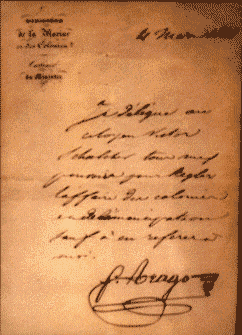 de la Marine
et des Colonies
du Ministre
4 Mars
Je délègue au
citoyen Victor
Schœlcher tous mes
pouvoirs pour régler
l'affaire des colonies
en d'émancipation
sauf à en référer à
moi.
F. Arago